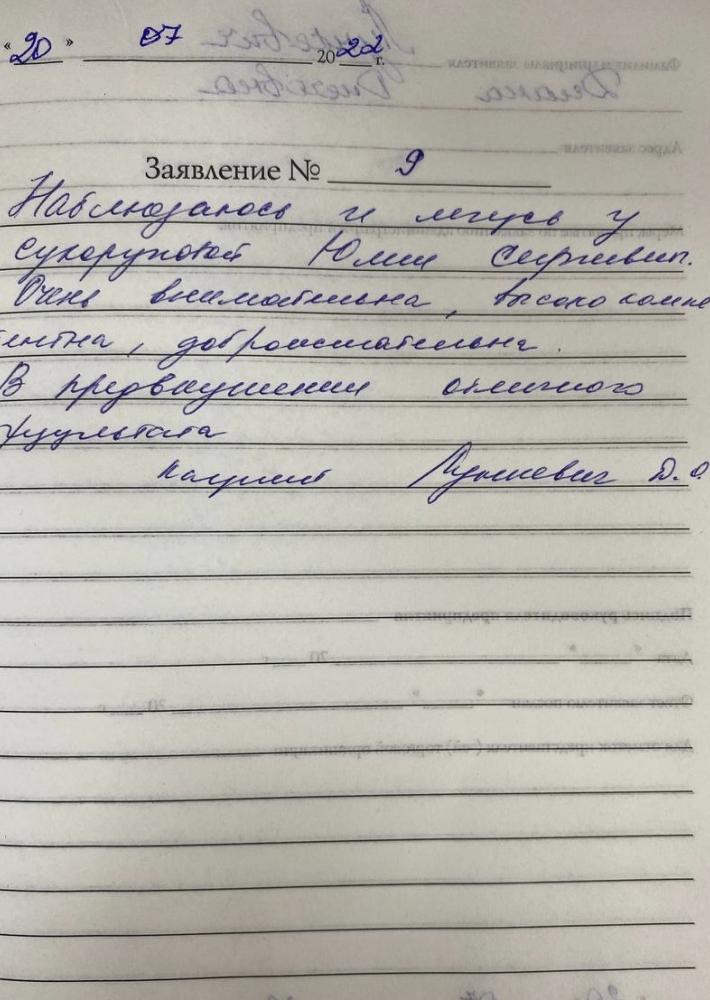 «20» 07 2022 г.
Заявление № 9
Наблюдаюсь и лечусь у
Сухоруковой Юлии Сергеевны.
Очень внимательна, высоко компе
тентна, доброжелательна.
В предвкушении отличного
результата
пациент Д.О.